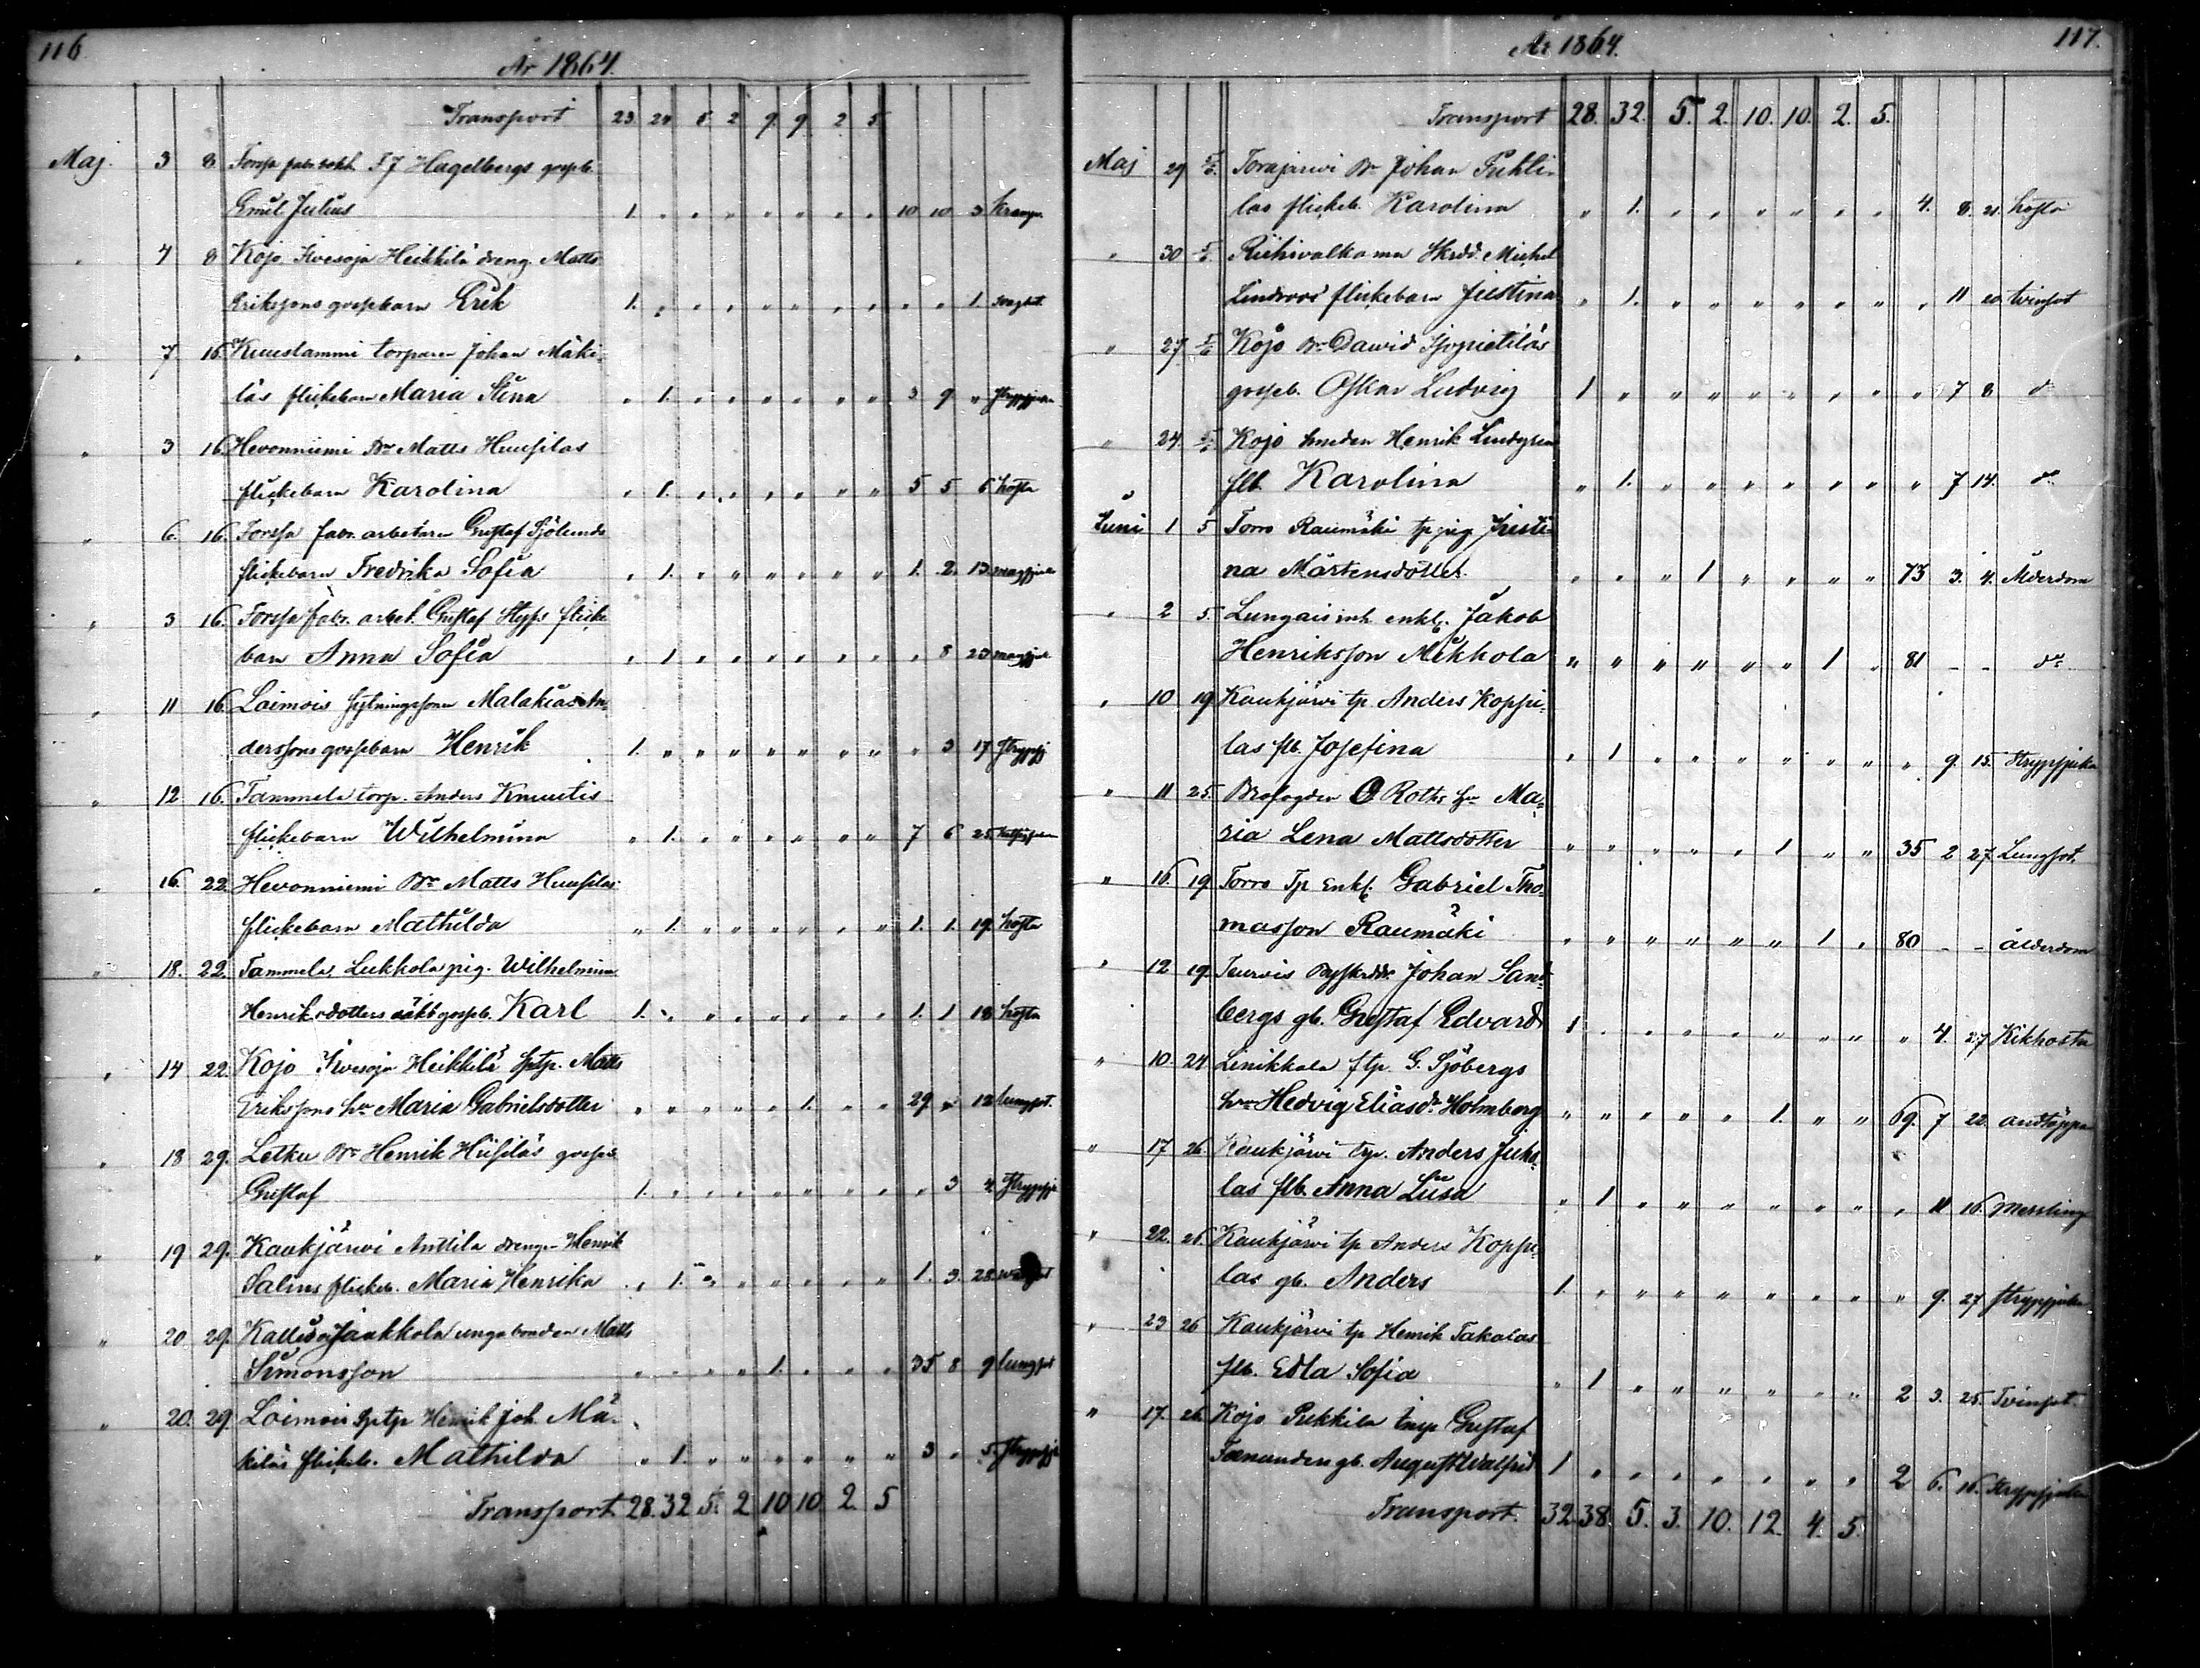 116.
År 1864.
Transport 23. 24 5. 2 9. 9. 2. 5
Maj. 3 8 Forssa Hagelbergs gosseb.
Emil Julius 1. " " " " " " " 10 10 3 Kramp.
" 4 8 Kojo Heikkilä dreng Matts
Erikssons gossebarn Erik 1. " " " " " " " " " 1.
" 7 16. Kuustammi torparen Johan Mäki-
läs flickebarn Maria Stina " 1. " " " " " " 3 9 "
" 3 16. Hevonniemi Bn Matts Huusilas
flickebarn Karolina " 1. " " " " " " 5 5 6 hosta
" 6. 16. Forssa fabr. arbetaren Gustaf Sjölunds
flickebarn Fredrika Sofia " 1. " " " " " " 1. 2. 13
" 3 16. Forssa fabr. arbet. Gustaf flicke
barn Anna Sofia " 1. " " " " " " " 8 23
" 11 16. Loimois sytningssonen Malakias An-
derssons gossebarn Henrik 1. " " " " " " " " 3 17 strypsj
" 12. 16. Tammela torp. Anders Knuutis
flickebarn Wilhelmina " 1. " " " " " " 7 6 25
" 16. 22. Hevonniemi Bn Matts Huusilas
flickebarn Mathilda " 1. " " " " " " 1. 1. 19. hosta
" 18. 22. Tammela Lukkola pig. Wilhelmina
Henriksdotters oäkta gosseb. Karl 1. " " " " " " " 1. 1 18 hosta
" 14 22. Kojo Heikkilä Matts
Erikssons hu Maria Gabrielsdotter " " " " " 1. " " 29 " 12 lungsot.
" 18 29. Letku Bn Henrik Hiisiläs gosseb
Gustaf 1. " " " " " " " " 3 4 strypsj
" 19 29. Kaukjärwi Anttila dreng Henrik
Salins flickeb. Maria Henrika " 1. " " " " " " 1. 3 28
" 20. 29. Jaakkola unga bonden Matts
Simonsson " " " " 1. " " " 35 8 9 lungsot
" 20. 29. Loimois Henrik Joh. Mä-
kiläs flickeb. Mathilda " 1. " " " " " " 3 " 5. strypsj
Transport 28. 32 5. 2 10 10 2 5
117.
År 1864.
Transport 28. 32. 5. 2. 10. 10. 2. 5.
Maj 29 5/6. Torajärwi Bn Johan
las flickeb. Karolina " 1. " " " " " " 4. 8. 21. hosta
" 30 5/6. Riihivalkama Skrdd. Michel
Lindroos flickebarn Justina " 1. " " " " " " " 11 20. tvinsot
" 27 5/6 Kojo Bn Dawid
gosseb. Oskar Ludvig 1 " " " " " " " " 7 8 do
" 24. 5/6 Kojo smeden Henrik Lindgren
flb. Karolina " 1. " " " " " " " 7 14. do
Juni 1 5 Torro Raumäki tp pig Kristi-
na Mårtensdotter " " " 1 " " " " 73 3. 4. Ålderdom
" 2 5. inh. enkl. Jakob
Henriksson Mikkola " " " " " " 1 " 81 - - do
" 10 19 Kaukjärwi tp. Anders Koppi-
las flb. Josefina " 1 " " " " " " " 9. 15. Strypsjuka
" 11 25. Brofogden O Roths hu Ma-
ria Lena Mattsdotter " " " " " 1. " " 35 2 27. Lungsot.
" 16. 19 Torro Tp Enkl. Gabriel Tho-
masson Raumäki " " " " " " 1 " 80 - - ålderdom
" 12 19. Teuvois Johan Sand-
bergs gb. Gustaf Edvard 1 " " " " " " " " 4. 27 Kikhosta
" 10. 24 Linikkala G. Sjöbergs
hu Hedvig Eliasdr Holmberg " " " " " 1. " " 69. 7 22. andtäppa
" 17 26. Kaukjärwi tp. Anders Juha-
las flb. Anna Liisa " 1 " " " " " " " 11 16. Messling
" 22. 26. Kaukjärwi tp Anders Koppi-
las gb. Anders 1. " " " " " " " " 9. 27 strypsjuka
" 23 26 Kaukjärwi tp Henrik Takalas
flb. Edla Sofia " 1 " " " " " " 2 3. 25. Tvinsot.
" 17. 26. Kojo Pukkila Gustaf
gb. August Walfrid 1 " " " " " " " 2 6. 16. Strypsjuka
Transport. 32. 38. 5. 3. 10. 12 4. 5.